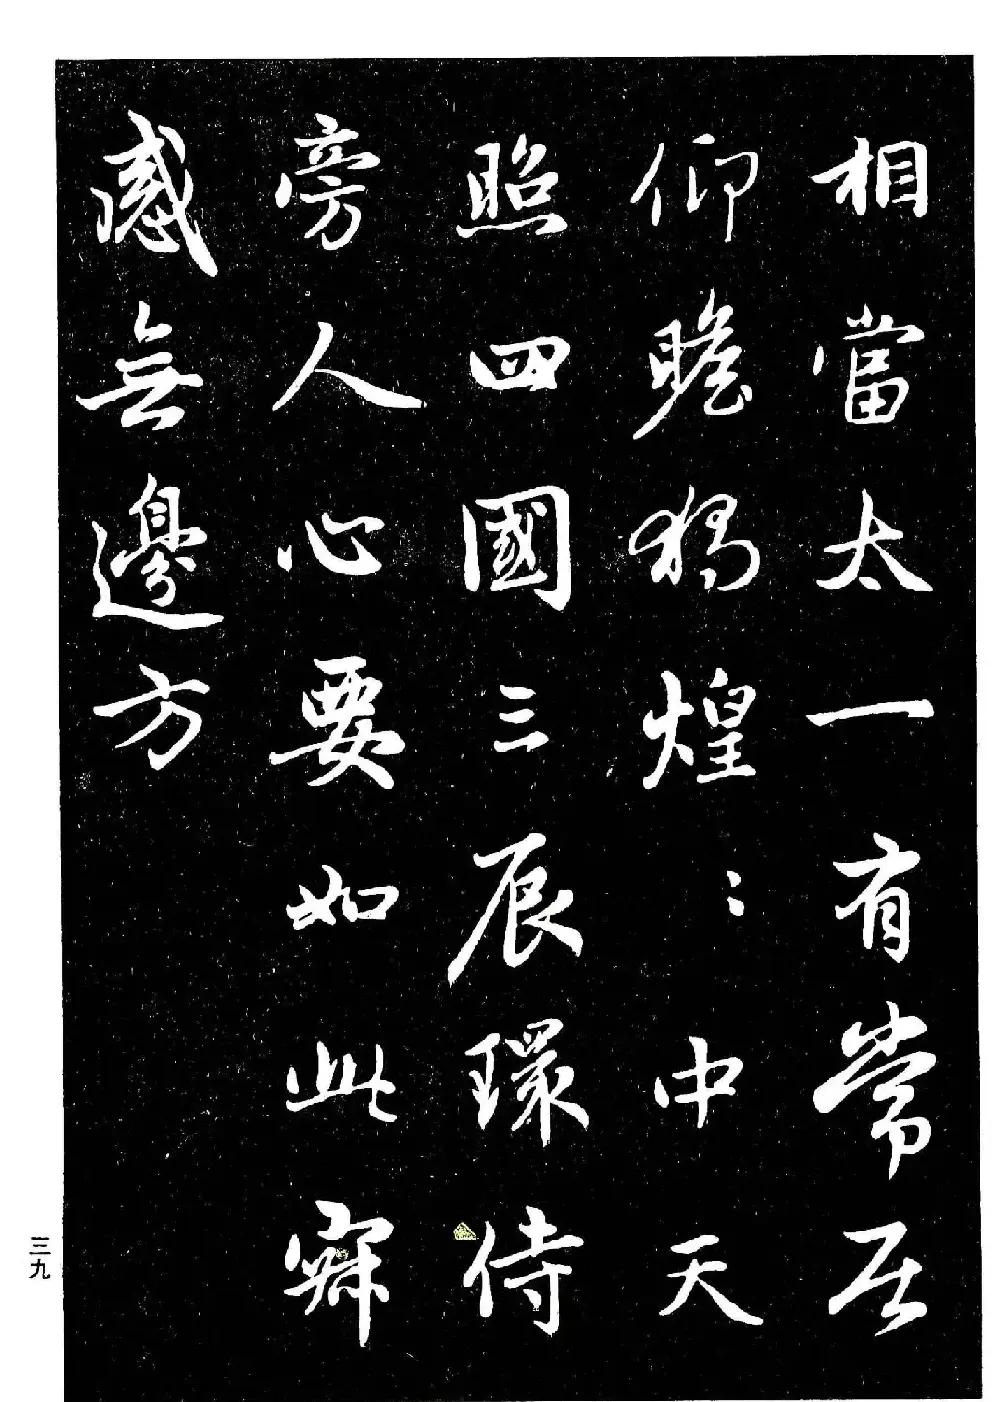 相當太一有常居
仰瞻獨煌〻中天
照四國三辰環侍
旁人心要如此寐
感無邊方
三九